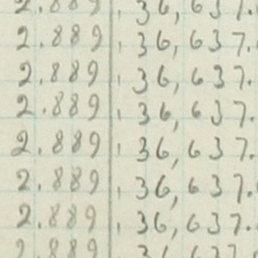 2.889 36,637.
2.889 36,637.
2.889 36,637.
2.889 36,637.
2.889 36,637.
2.889 36,637.
2.889 36,637.
2.889 36,637.